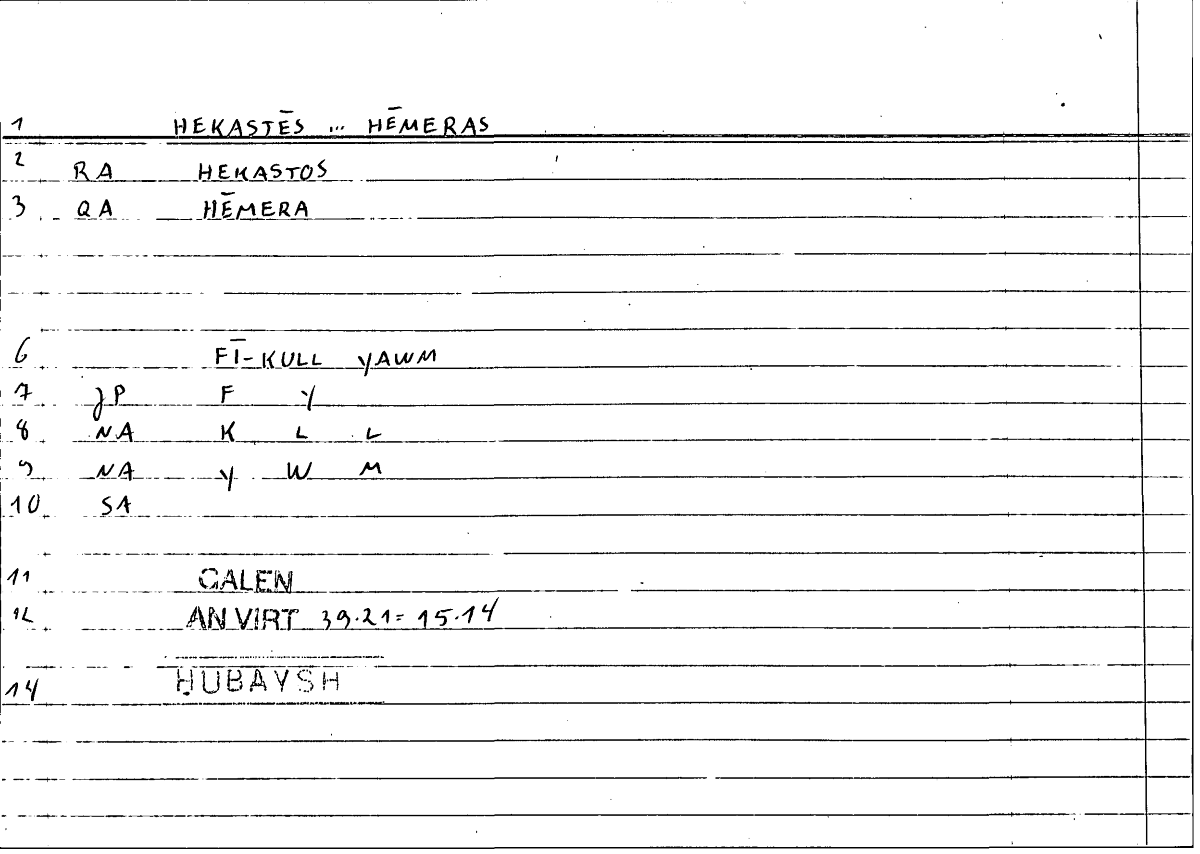 1 HEKASTĒS ... HĒMERAS
2 RA HEKASTOS
3 QA HĒMERA
6 FĪ-KULL YAWM
7 JP F Y
8 NA K L L
9 NA Y W M
10 SA
11 GALEN
12 AN VIRT 39.21= 15.14
14 ḤUBAYSH